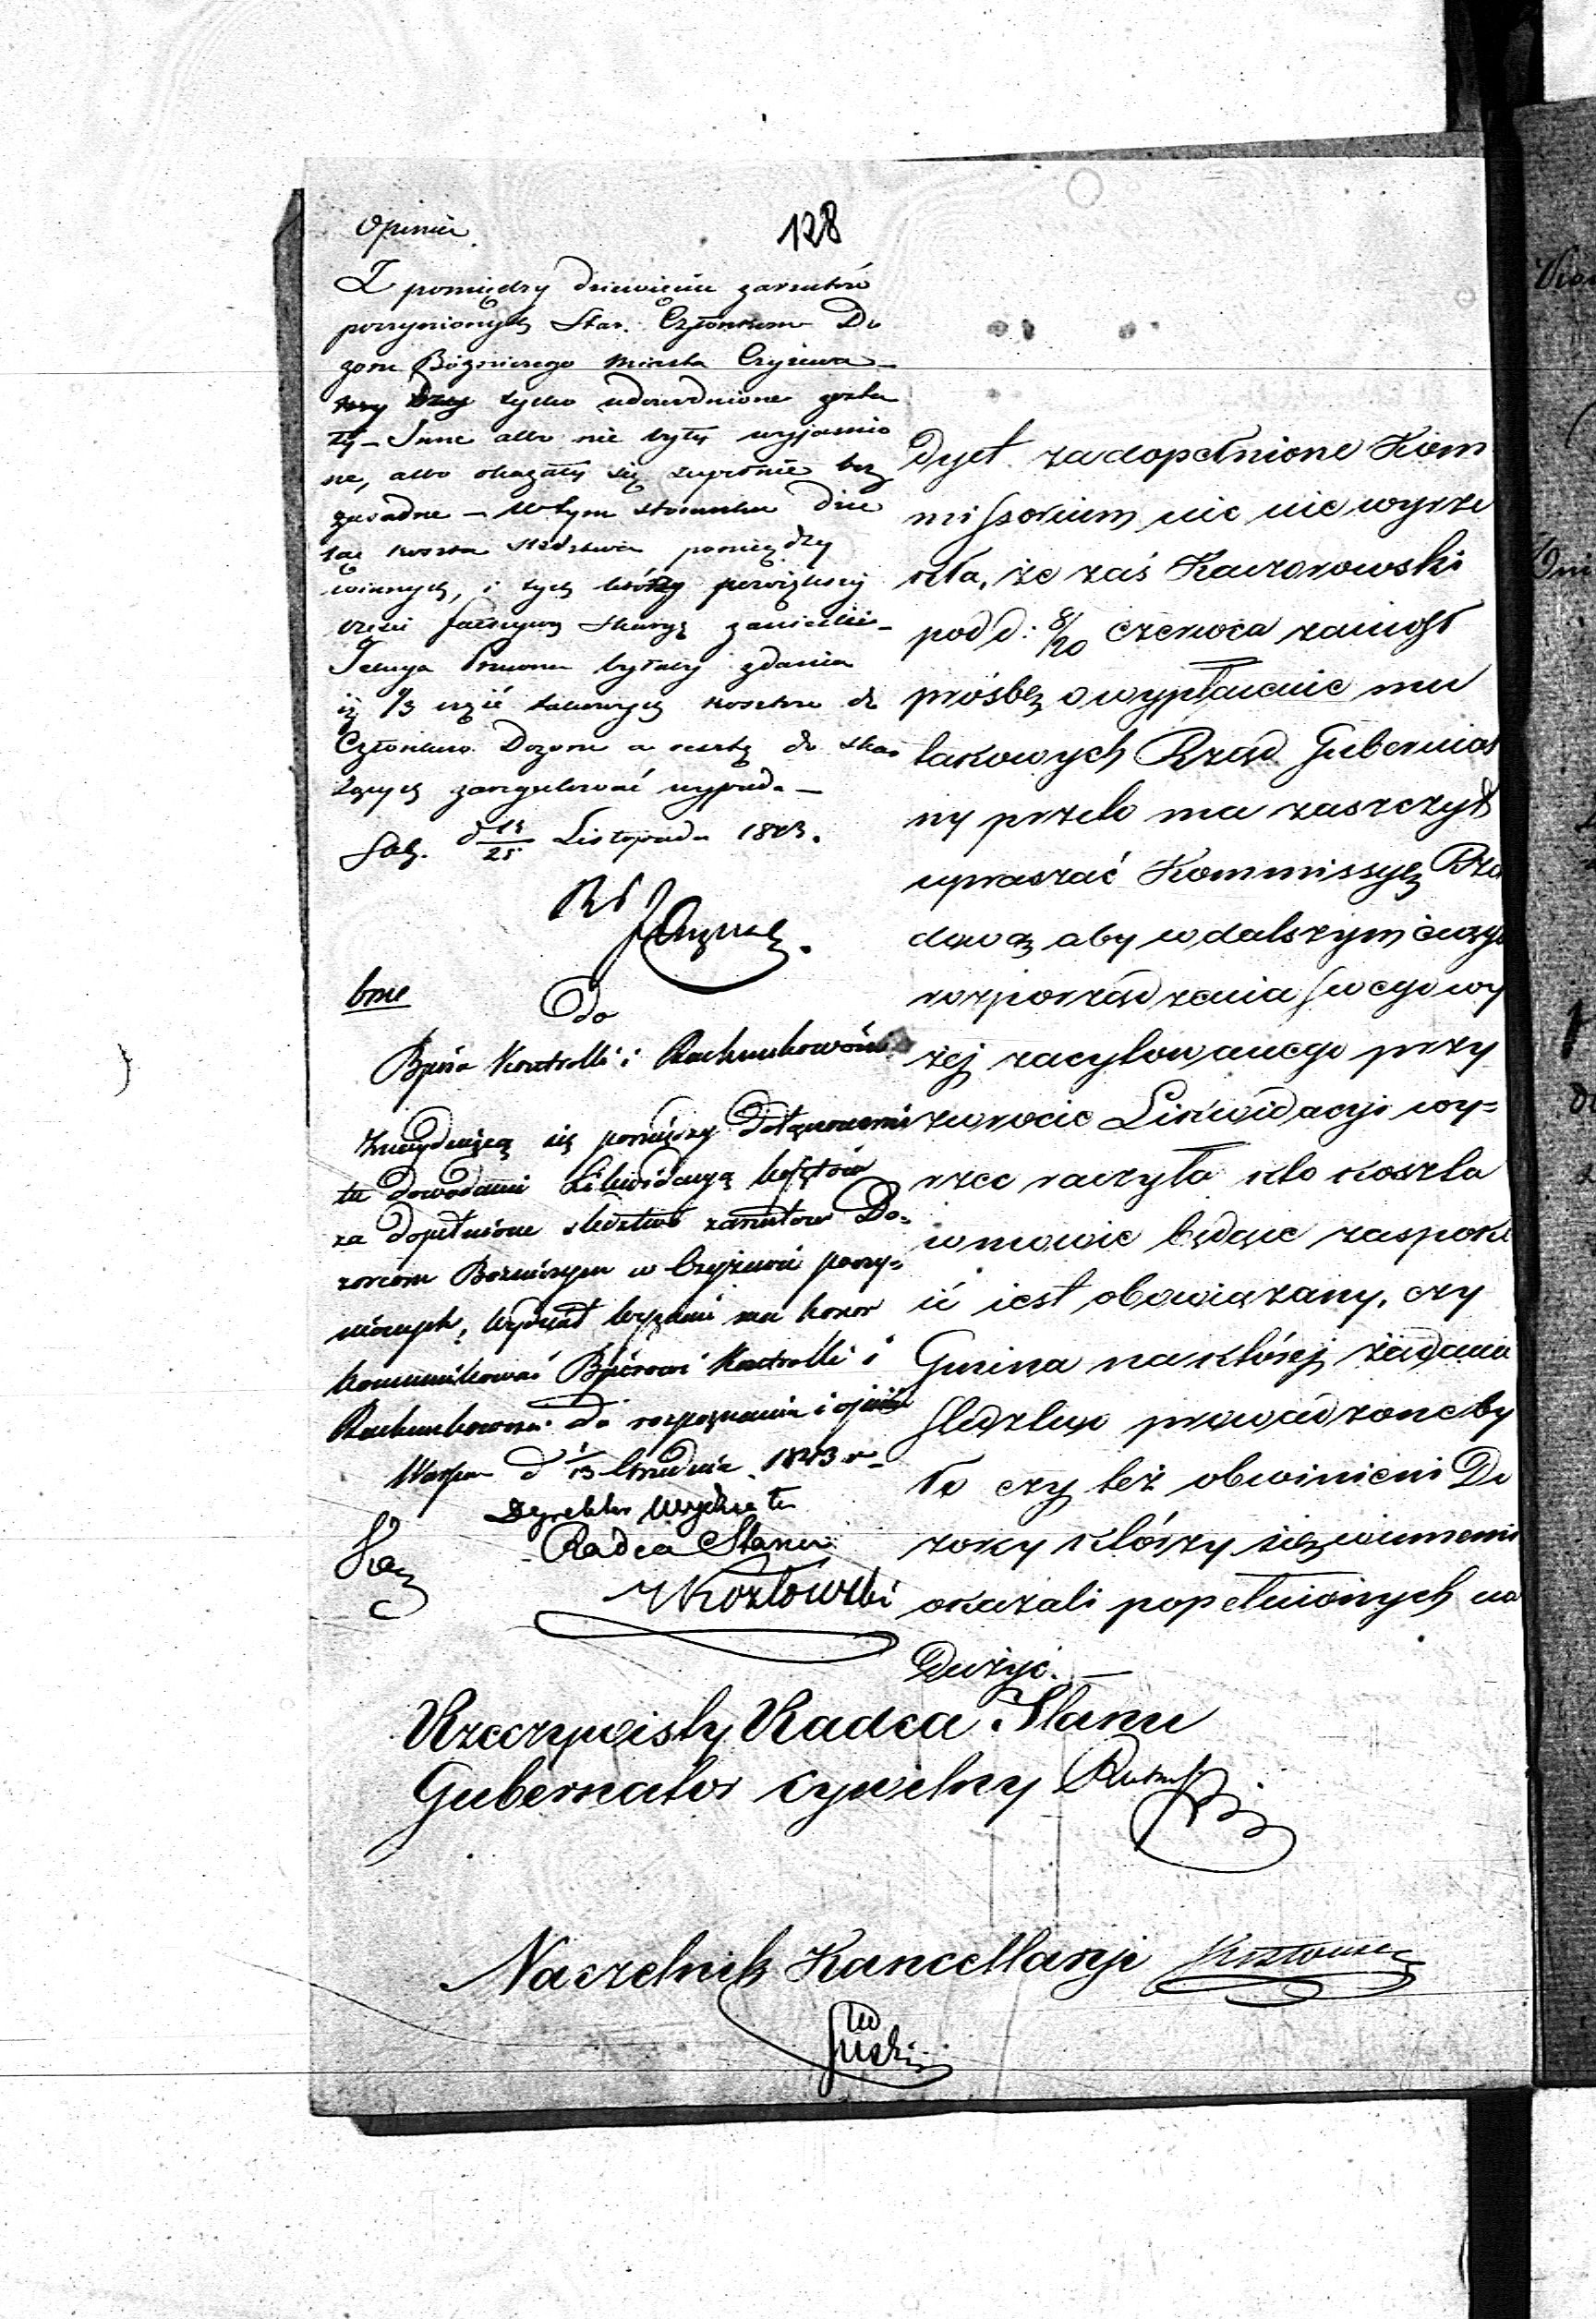 128
Opinia
Z pomiędzy dziewięciu zarzutów
poczynionych Star. Członkom Do
zoru Bóżniczego miasta Czyżewa
trzy tylko udowodnione zosta
ły – Inne albo nie były wyjaśnio
ne, albo okazały się zupełnie bez
zasadne – W tym stosunku dzie
ląc koszta śledztwa pomiędzy
winnych, i tych którzy powiększej
części fałszywą skargę zanieśli –
Sekcya byłaby zdania
iż 1/3 część takowych kosztów do
Członków Dozoru a resztę do skar
żących zaregulować wypada –
d 13/25 Listopada 1843.
Do
Bjura Kontrolli i Rachunkowości
Znajdującą się pomiędzy dołączonemi
tu dowodami Likwidacyą kosztów
za dopełnione śledztwo zarzutów Do=
zorcom Bożniczym w Czyżewie poczy=
nionych, Wydział Wyznań ma honor
kommunikować Bjórowi Kontrolli i
Rachunkowości do rozpoznania i opinii
Warszawa d 1/13 Grudnia 1843 r
Dyrektor Wydziału
Radca Stanu
Kozłowski
dyel. za dopełnione Kom
missorium nic nie wyrze
kła, że zaś Kaczorowski
pod d: 8/20 czerwca zaniósł
prośbę o wypłacenie mu
takowych Rząd Gubernial
ny przeto ma zaszczyt
upraszać Kommissyę Rzą
dową aby w dalszym ciągu
rozporządzenia swego wy
żej zacytowanego przy
zwrocie Likwidacyi wy=
rzec raczyła kto koszta
w mowie będące zaspoko
ić jest obowiązany, czy
Gmina na której żądanie
śledztwo prowadzone by
ło czy też obwinieni Do
zorcy którzy się winnemi
okazali popełnionych na
dużyć. –
Rzeczywisty Radca Stanu
Gubernator Cywilny
Naczelnik Kancellaryi